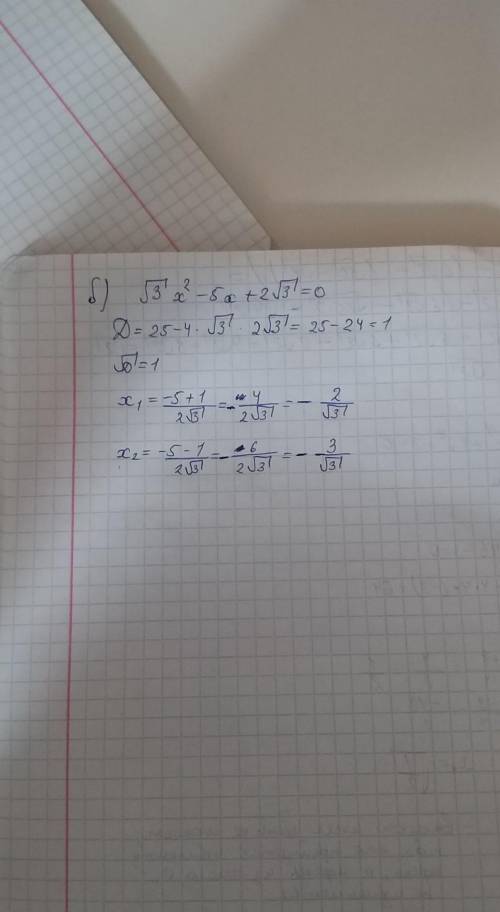 б) √3 x² - 5x + 2√3 = 0
Д = 25 - 4 · √3 · 2√3 = 25 - 24 = 1
√D = 1
x₁ = (-5 + 1)/(2√3) = - 4/(2√3) = - 2/√3
x₂ = (-5 - 1)/(2√3) = - 6/(2√3) = - 3/√3